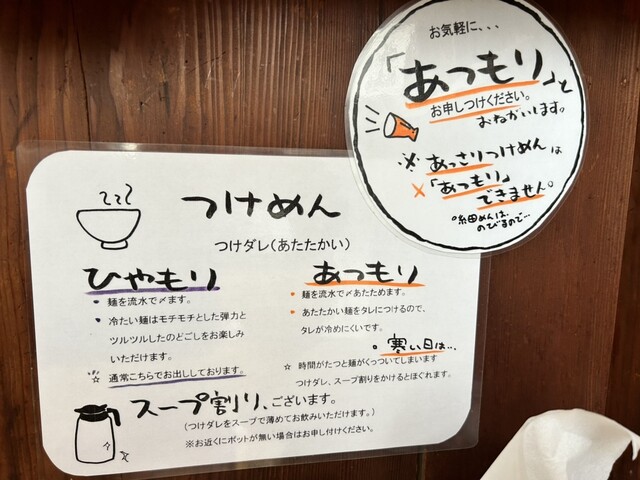 お気軽に、、、
「あつもり」と
お申しつけください。
おねがいします。
※あっさりつけめんは
×「あつもり」
できません。
°細めんは、
のびるので…
つけめん
つけダレ（あたたかい）
ひやもり
• 麺を流水で〆ます。
• 冷たい麺はモチモチとした弾力と
ツルツルしたのどごしをお楽しみ
いただけます。
☆ 通常こちらでお出ししております。
あつもり
• 麺を流水で〆あたためます。
• あたたかい麺をタレにつけるので、
タレが冷めにくいです。
。寒い日は…
☆ 時間がたつと麺がくっついてしまいます
つけダレ、スープ割りをかけるとほぐれます。
スープ割り、ございます。
（つけダレをスープで薄めてお飲みいただけます。）
※お近くにポットが無い場合はお申し付けください。